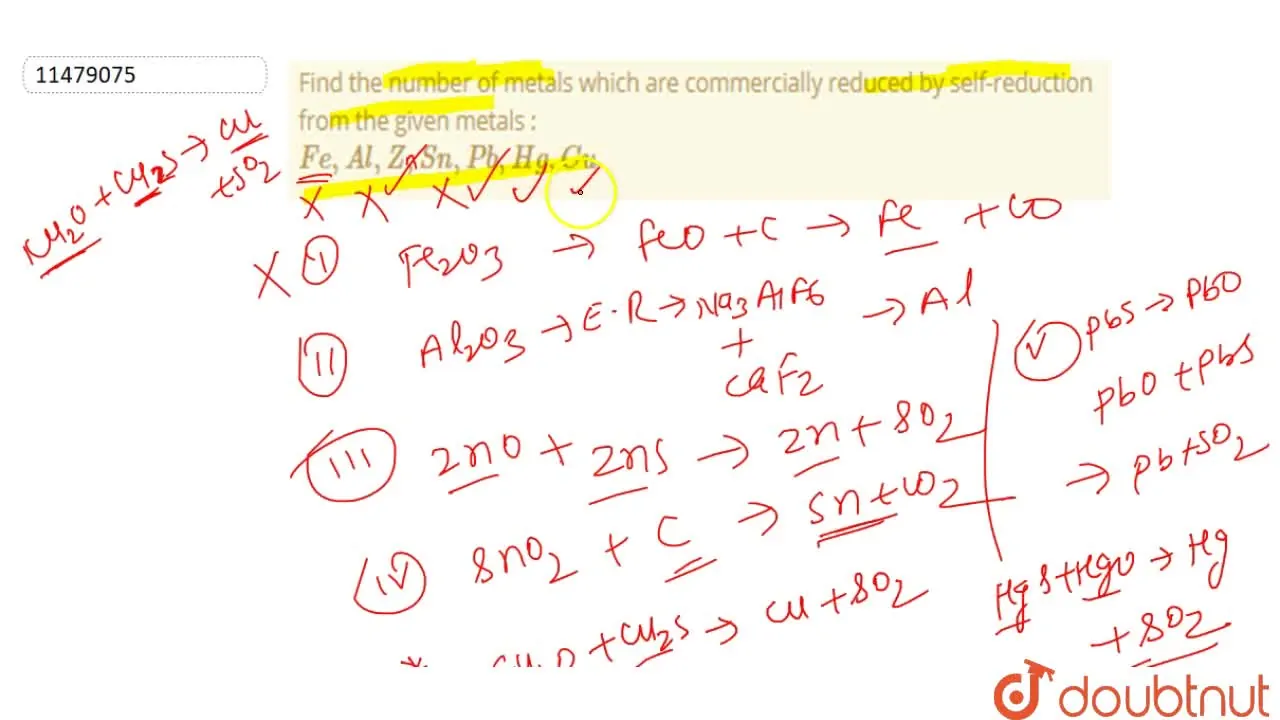 11479075
Find the number of metals which are commercially reduced by self-reduction
from the given metals :
Fe, Al, Zn, Sn, Pb, Hg, Cu
Cu2O + Cu2S → Cu
+ SO2
X X ✓ X ✓ ✓ ✓
X I Fe2O3 → FeO + C → Fe + CO
II Al2O3 → E.R → Na3AlF6 → Al
+
CaF2
III ZnO + ZnS → Zn + SO2
IV SnO2 + C → Sn + CO2
Cu2O + Cu2S → Cu + SO2
V PbS → PbO
PbO + PbS
→ Pb + SO2
HgS + HgO → Hg
+ SO2
doubtnut